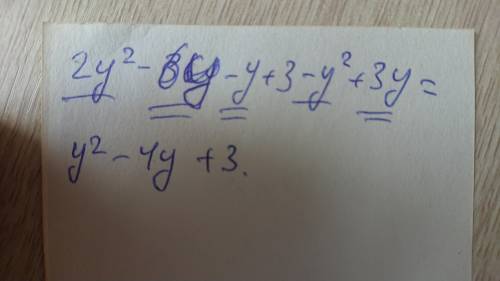 2y² - 6y - y + 3 - y² + 3y =
y² - 4y + 3.